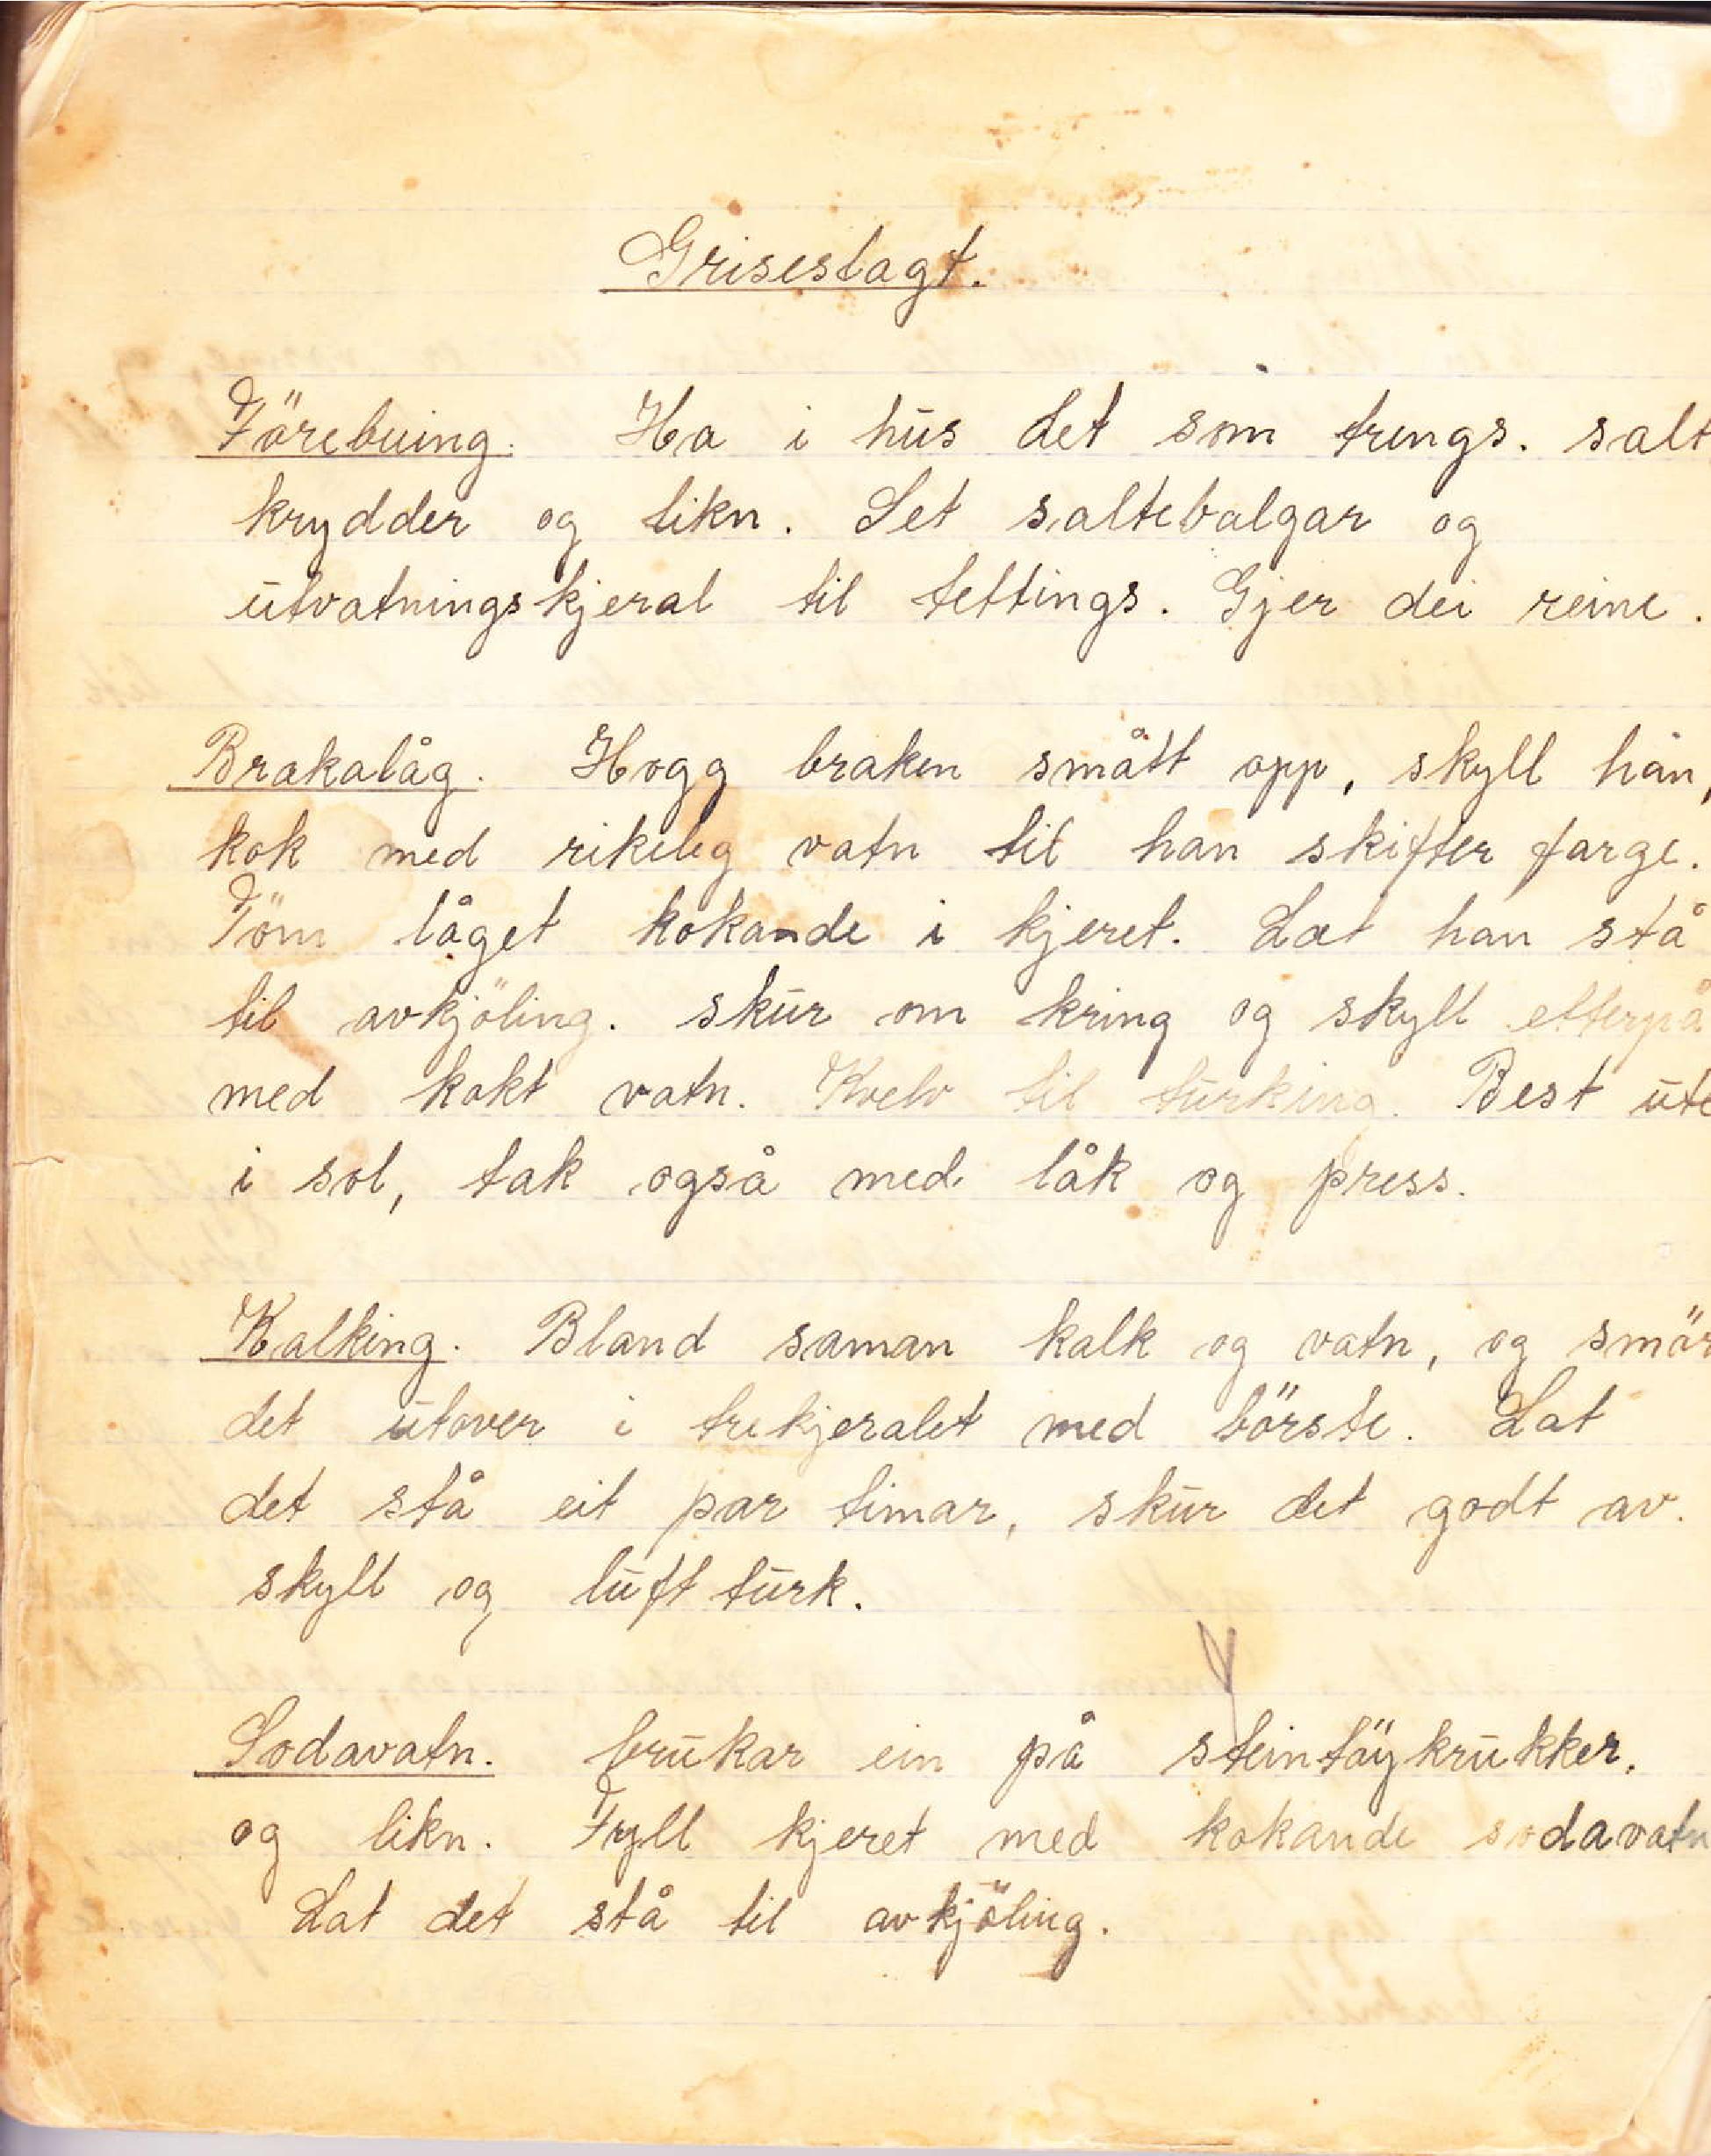 Griseslagt.
Förebuing. Ha i hus det som trengs. salt
krydder og likn. Set saltebalgar og
utvatningskjeral til tettings. Gjer dei reine.
Brakalåg. Hogg braken smått opp, skyll han,
kok med rikeleg vatn til han skifter farge.
Töm låget kokande i kjeret. Lat han stå
til avkjöling. skur om kring og skyll etterpå
med kokt vatn. Kvelv til turking. Best ute
i sol, tak også med låk og press.
Kalking. Bland saman kalk og vatn, og smör
det utover i trekjeralet med börste. Lat
det stå eit par timar, skur det godt av.
skyll og luft turk.
Sodavatn. brukar ein på steintöykrukker.
og likn. Fyll kjeret med kokande sodavatn
Lat det stå til avkjöling.